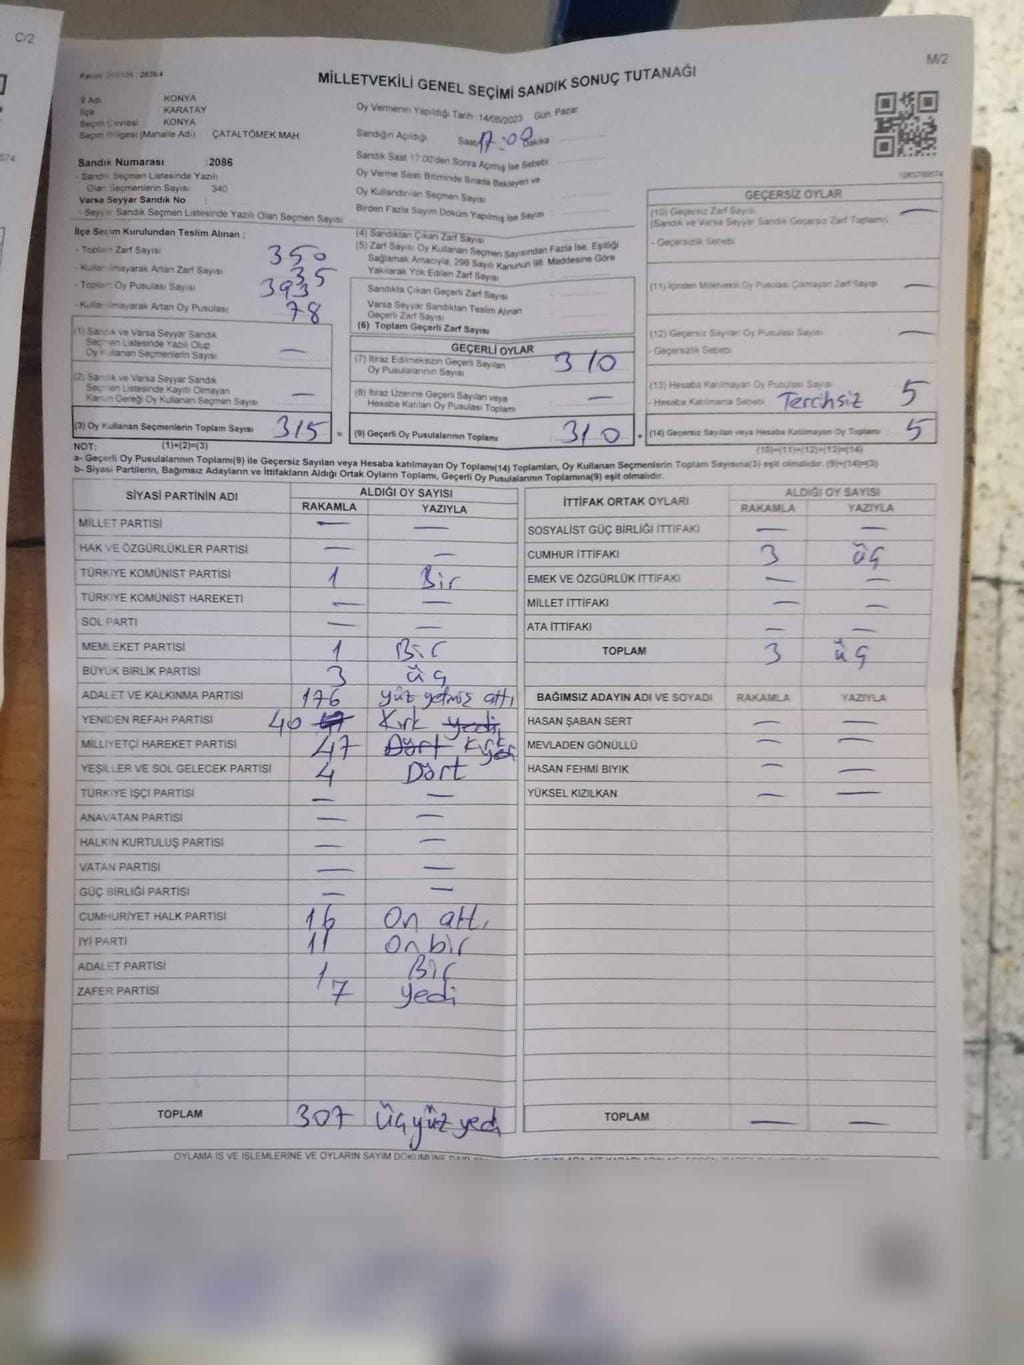 C/2
M/2
MİLLETVEKİLİ GENEL SEÇİMİ SANDIK SONUÇ TUTANAĞI
İl Adı KONYA
İlçe KARATAY
Seçim Çevresi KONYA
Seçim Bölgesi (Mahalle Adı) : ÇATALTÖMEK MAH
Sandık Numarası : 2086
- Sandık Seçmen Listesinde Yazılı
Olan Seçmenlerin Sayısı 340
Varsa Seyyar Sandık No
- Seyyar Sandık Seçmen Listesinde Yazılı Olan Seçmen Sayısı:
Oy Vermenin Yapıldığı Tarih : 14/05/2023 Gün: Pazar
Sandığın Açıldığı Saat 17:00 Dakika
Sandık Saat 17:00'den Sonra Açılmış İse Sebebi
Oy Verme Saati Bitiminde Sırada Bekleyen ve
Oy Kullandırılan Seçmen Sayısı
Birden Fazla Sayım Döküm Yapılmış İse Sayısı
İlçe Seçim Kurulundan Teslim Alınan ;
- Toplam Zarf Sayısı 350
- Kullanılmayarak Artan Zarf Sayısı 35
- Toplam Oy Pusulası Sayısı 393
- Kullanılmayarak Artan Oy Pusulası 78
(1) Sandık ve Varsa Seyyar Sandık
Seçmen Listesinde Yazılı Olup
Oy Kullanan Seçmenlerin Sayısı —
(2) Sandık ve Varsa Seyyar Sandık
Seçmen Listesinde Kayıtlı Olmayan
Kanun Gereği Oy Kullanan Seçmen Sayısı —
(3) Oy Kullanan Seçmenlerin Toplam Sayısı 315 =
(4) Sandıktan Çıkan Zarf Sayısı
(5) Zarf Sayısı Oy Kullanan Seçmen Sayısından Fazla İse, Eşitliği
Sağlamak Amacıyla, 298 Sayılı Kanunun 98. Maddesine Göre
Yakılarak Yok Edilen Zarf Sayısı
Sandıkta Çıkan Geçerli Zarf Sayısı
Varsa Seyyar Sandıktan Teslim Alınan
Geçerli Zarf Sayısı
(6) Toplam Geçerli Zarf Sayısı
GEÇERLİ OYLAR
(7) İtiraz Edilmeksizin Geçerli Sayılan
Oy Pusulalarının Sayısı 310
(8) İtiraz Üzerine Geçerli Sayılan veya
Hesaba Katılan Oy Pusulası Toplamı —
(9) Geçerli Oy Pusulalarının Toplamı 310 +
GEÇERSİZ OYLAR
(10) Geçersiz Zarf Sayısı —
(Sandık ve Varsa Seyyar Sandık Geçersiz Zarf Toplamı)
- Geçersizlik Sebebi
(11) İçinden Milletvekili Oy Pusulası Çıkmayan Zarf Sayısı —
(12) Geçersiz Sayılan Oy Pusulası Sayısı —
- Geçersizlik Sebebi
(13) Hesaba Katılmayan Oy Pusulası Sayısı 5
- Hesaba Katılmama Sebebi Tercihsiz
(14) Geçersiz Sayılan veya Hesaba Katılmayan Oy Toplamı 5
(10)+(11)+(12)+(13)=(14)
NOT: (1)+(2)=(3)
a- Geçerli Oy Pusulalarının Toplamı(9) ile Geçersiz Sayılan veya Hesaba katılmayan Oy Toplamı(14) Toplamları, Oy Kullanan Seçmenlerin Toplam Sayısına(3) eşit olmalıdır. (9)+(14)=(3)
b- Siyasi Partilerin, Bağımsız Adayların ve İttifakların Aldığı Ortak Oyların Toplamı, Geçerli Oy Pusulalarının Toplamına(9) eşit olmalıdır.
SİYASİ PARTİNİN ADI ALDIĞI OY SAYISI
RAKAMLA YAZIYLA
MİLLET PARTİSİ — —
HAK VE ÖZGÜRLÜKLER PARTİSİ — —
TÜRKİYE KOMÜNİST PARTİSİ 1 Bir
TÜRKİYE KOMÜNİST HAREKETİ — —
SOL PARTİ — —
MEMLEKET PARTİSİ 1 Bir
BÜYÜK BİRLİK PARTİSİ 3 üç
ADALET VE KALKINMA PARTİSİ 176 yüz yetmiş altı
YENİDEN REFAH PARTİSİ 40 47 Kırk yedi
MİLLİYETÇİ HAREKET PARTİSİ 47 Dört Kırk yedi
YEŞİLLER VE SOL GELECEK PARTİSİ 4 Dört
TÜRKİYE İŞÇİ PARTİSİ — —
ANAVATAN PARTİSİ — —
HALKIN KURTULUŞ PARTİSİ — —
VATAN PARTİSİ — —
GÜÇ BİRLİĞİ PARTİSİ — —
CUMHURİYET HALK PARTİSİ 16 On altı
İYİ PARTİ 11 On bir
ADALET PARTİSİ 1 Bir
ZAFER PARTİSİ 7 yedi
TOPLAM 307 Üçyüz yedi
İTTİFAK ORTAK OYLARI ALDIĞI OY SAYISI
RAKAMLA YAZIYLA
SOSYALİST GÜÇ BİRLİĞİ İTTİFAKI — —
CUMHUR İTTİFAKI 3 üç
EMEK VE ÖZGÜRLÜK İTTİFAKI — —
MİLLET İTTİFAKI — —
ATA İTTİFAKI — —
TOPLAM 3 üç
BAĞIMSIZ ADAYIN ADI VE SOYADI RAKAMLA YAZIYLA
HASAN ŞABAN SERT — —
MEVLADEN GÖNÜLLÜ — —
HASAN FEHMİ BIYIK — —
YÜKSEL KIZILKAN — —
TOPLAM — —
OYLAMA İŞ VE İŞLEMLERİNE VE OYLARIN SAYIM DÖKÜMÜNE DAİR